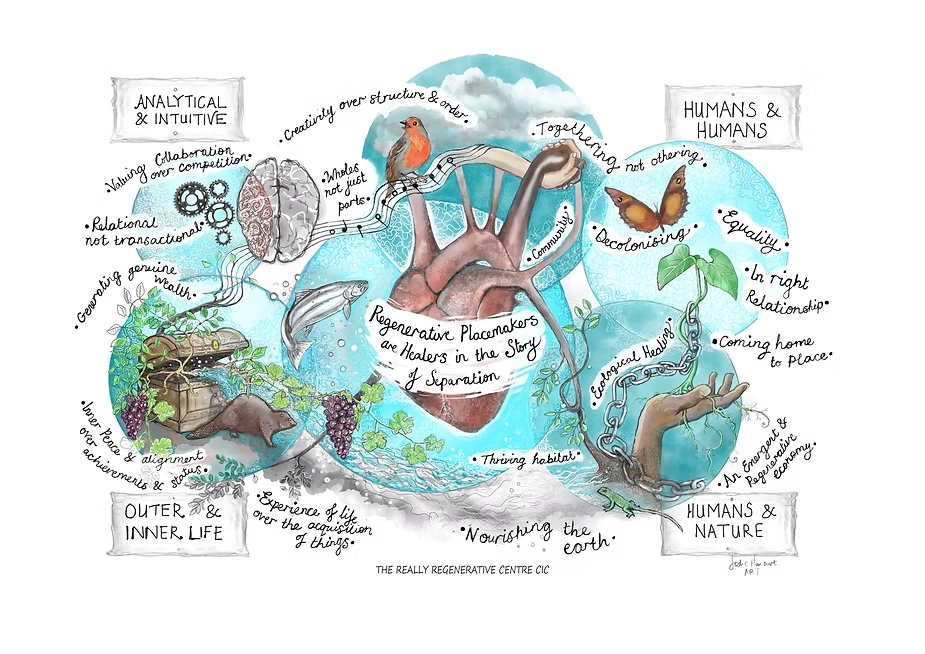 ANALYTICAL
& INTUITIVE
•Creativity over structure & order•
HUMANS &
HUMANS
•Valuing Collaboration
over competition•
•Wholes
not just
parts•
•Togethering not othering•
•Relational
not transactional•
•Community•
•Decolonising•
•Equality•
•Generating genuine
wealth•
•In right
Relationship•
Regenerative Placemakers
are Healers in the Story
of Separation
•Ecological Healing•
•Coming home
to Place•
•Inner Peace & alignment
over
achievements & status•
•Thriving habitat•
•An Emergent &
Regenerative
economy•
OUTER &
INNER LIFE
•Experience of life
over the acquisition
of things•
•Nourishing the
earth•
HUMANS &
NATURE
ART
THE REALLY REGENERATIVE CENTRE CIC